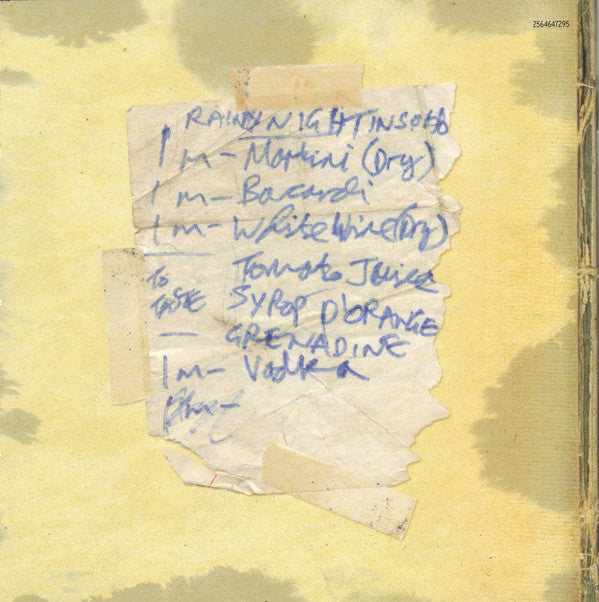 2564647295
RAINY NIGHT IN SOHO
1 m - Martini (Dry)
1 m - Bacardi
1 m - White Wine (Dry)
TO TASTE
Tomato Juice
SYROP D'ORANGE
— GRENADINE
1 m - Vodka